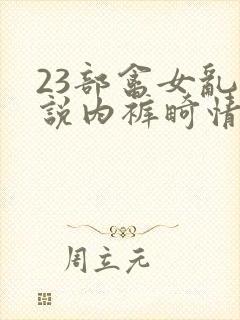 23部畜女乱
説内裤畸情
周立元